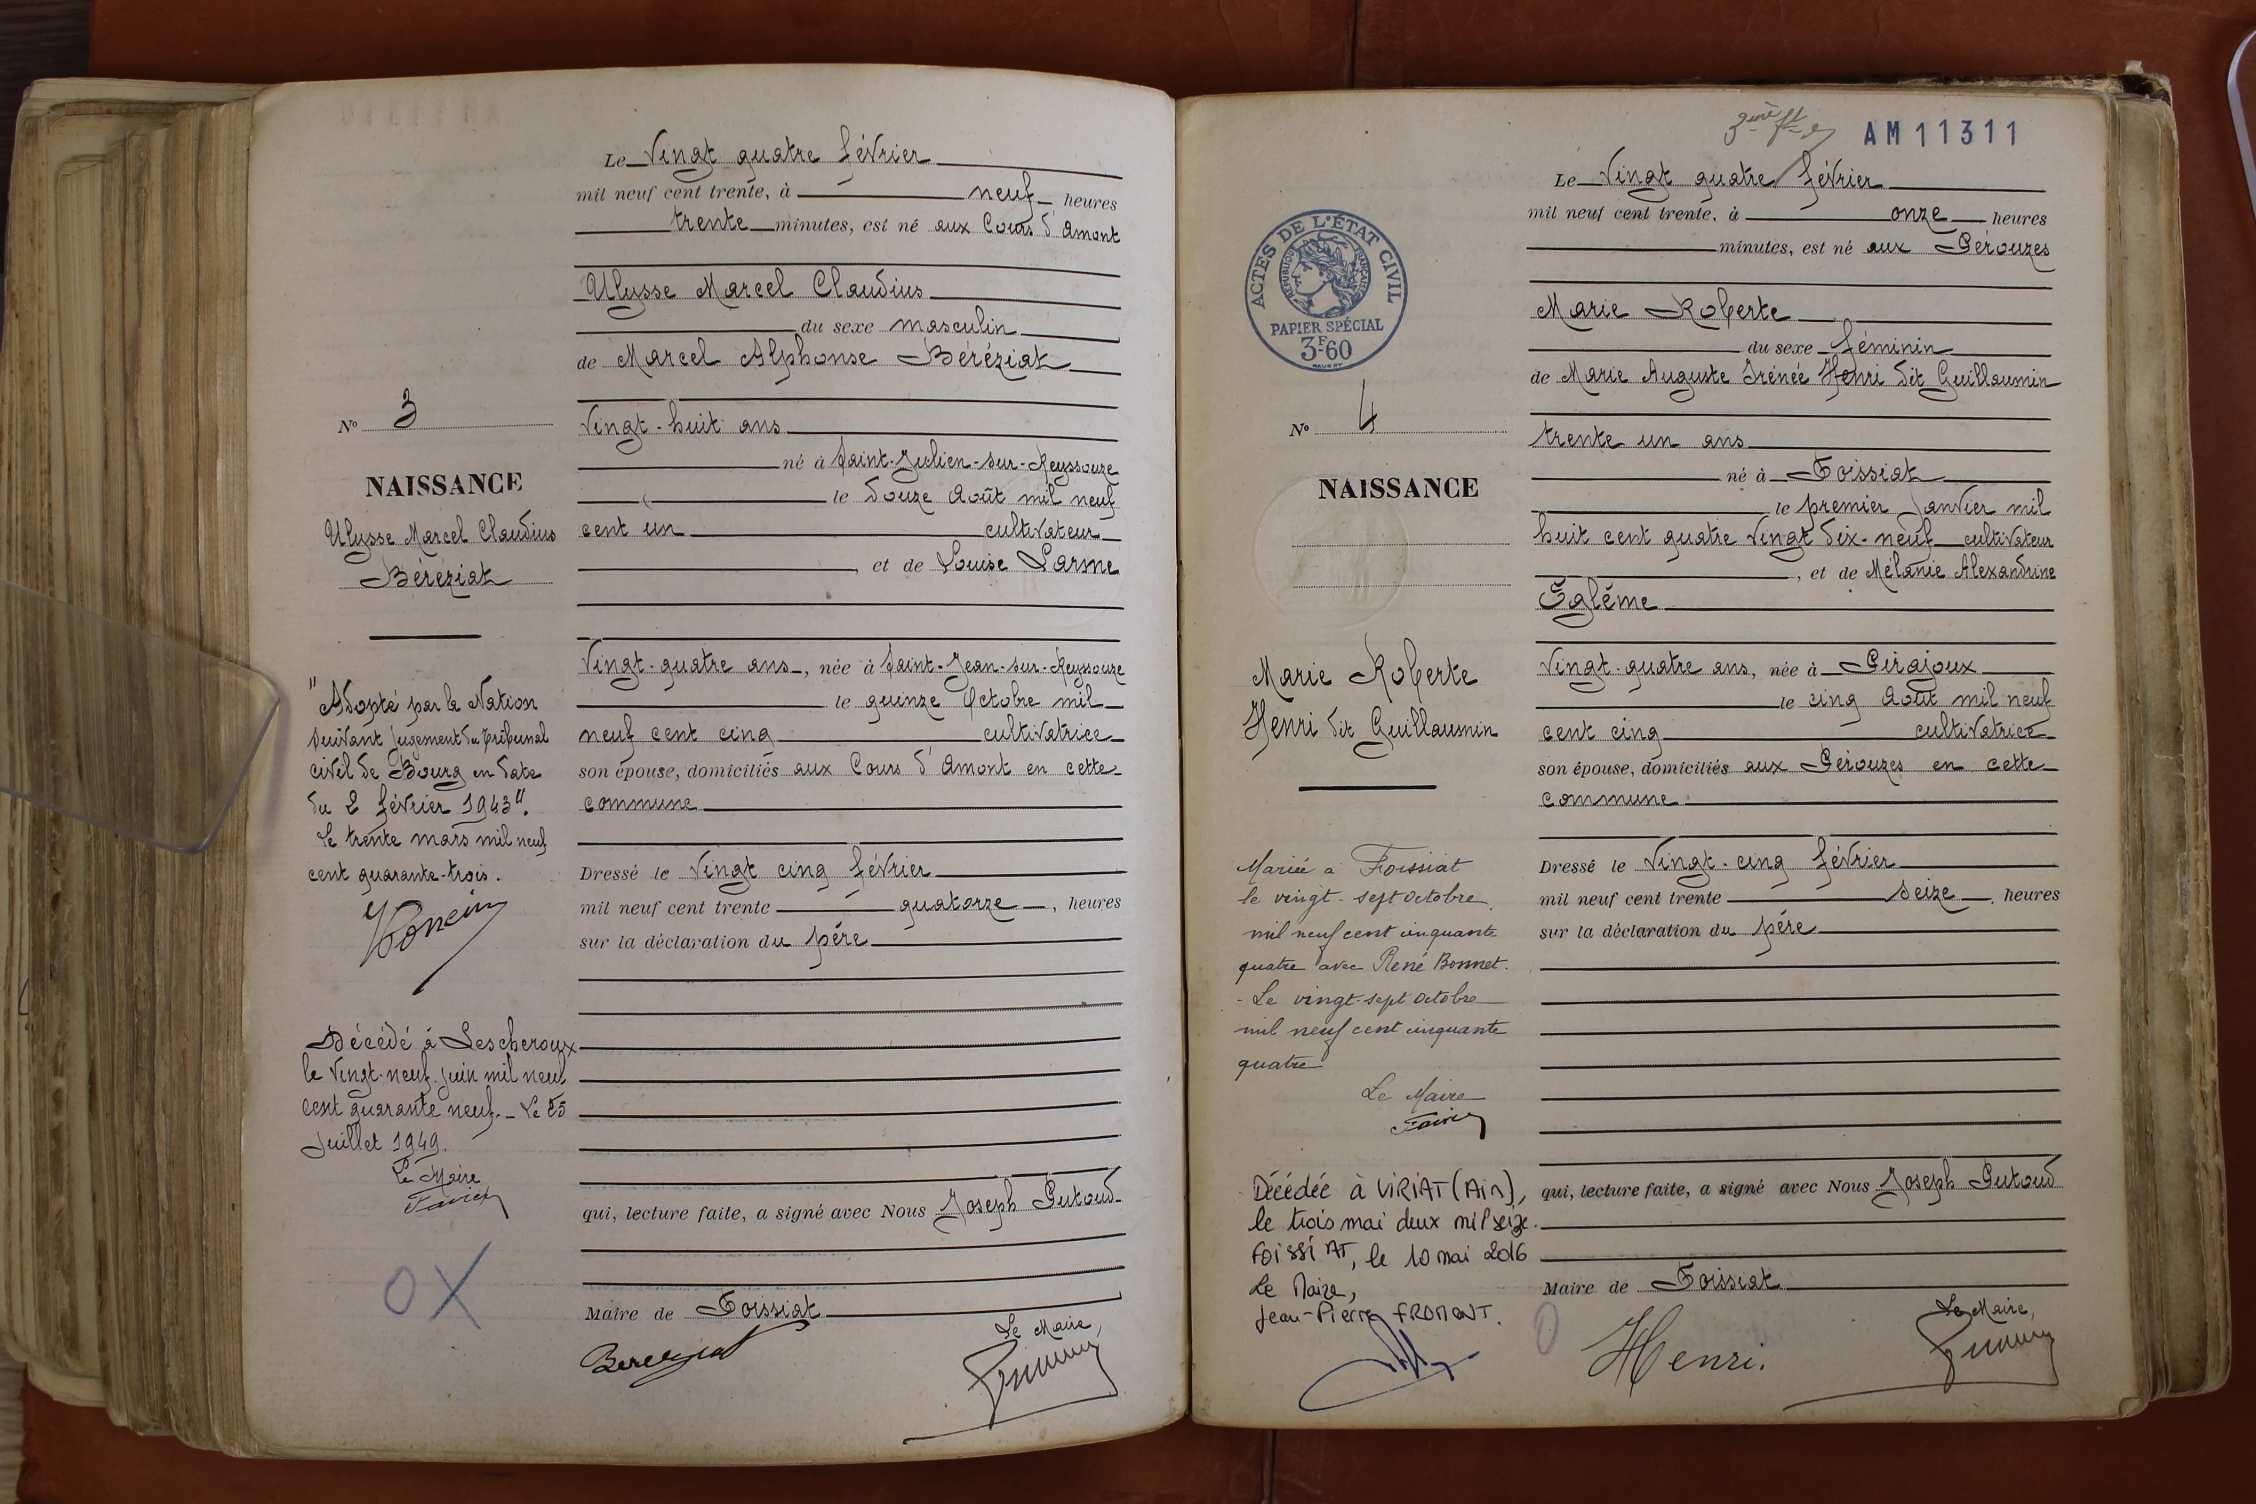 Le Vingt quatre février
mil neuf cent trente, à neuf heures
trente minutes, est né aux Cours d'Amont
Ulysse Marcel Claudius
du sexe masculin
de Marcel Alphonse Béréziat
Vingt-huit ans
né à Saint-Julien-sur-Reyssouze
le douze Août mil neuf
cent un cultivateur
et de Louise Larme
Vingt-quatre ans, née à Saint-Jean-sur-Reyssouze
le quinze Octobre mil
neuf cent cinq cultivatrice
son épouse, domiciliés aux Cours d'Amont en cette
commune
Dressé le Vingt cinq février
mil neuf cent trente quatorze, heures
sur la déclaration du père
qui, lecture faite, a signé avec Nous Joseph Putoud
Maire de Foissiat
Le Maire,
No 3
NAISSANCE
Ulysse Marcel Claudius
Béréziat
"Adopté par la Nation
suivant jugement du tribunal
civil de Bourg en date
du 2 février 1943".
Le trente mars mil neuf
cent quarante-trois.
Décédé à Lescheroux
le Vingt-neuf juin mil neuf
cent quarante neuf. Le
Juillet 1949.
Le Maire
AM11311
Le Vingt quatre février
mil neuf cent trente, à onze heures
minutes, est né aux Pérouzes
Marie Roberte
du sexe féminin
de Marie Auguste Irénée Henri dit Guillaumin
trente un ans
né à Foissiat
le premier Janvier mil
huit cent quatre Vingt dix-neuf cultivateur
, et de Mélanie Alexandrine
Eglême
Vingt-quatre ans, née à Pirajoux
le cinq Août mil neuf
cent cinq cultivatrice
son épouse, domiciliés aux Pérouzes en cette
commune
Dressé le Vingt-cinq février
mil neuf cent trente seize, heures
sur la déclaration du père
qui, lecture faite, a signé avec Nous Joseph Putoud
Maire de Foissiat
Le Maire,
Henri.
ACTES DE L'ÉTAT CIVIL
RÉPUBLIQUE FRANÇAISE
PAPIER SPÉCIAL
3F60
No 4
NAISSANCE
Marie Roberte
Henri dit Guillaumin
Mariée à Foissiat
le vingt-sept octobre
mil neuf cent cinquante
quatre avec René Bonnet.
- Le vingt-sept octobre
mil neuf cent cinquante
quatre
Le Maire
Décédée à VIRIAT (Ain),
le trois mai deux mil seize.
FOISSIAT, le 10 mai 2016
Le Maire,
Jean-Pierre FROMONT.